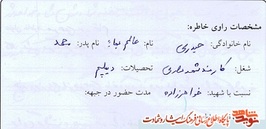 مشخصات راوی خاطره:
نام خانوادگی: حیدری نام: نام پدر: محمد
شغل: کارمند شهرداری تحصیلات: دیپلم
نسبت با شهید: خواهرزاده مدت حضور در جبهه:
پایگاه اطلاع رسانی فرهنگ ایثار و شهادت